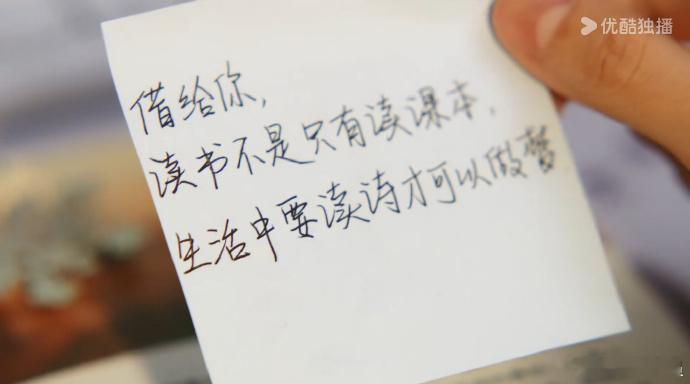 优酷独播
借给你，
读书不是只有读课本，
生活中要读诗才可以做梦